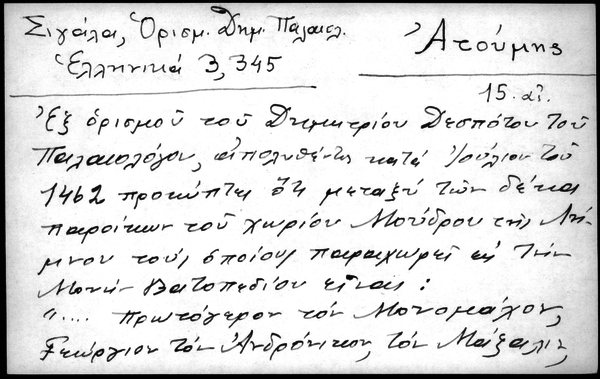 Σιγάλα, Ὁρισμ. Δημ. Παλαιολ.
Ἑλληνικά 3, 345
Ἀτούμης
15. αἰ.
Ἐξ ὁρισμοῦ τοῦ Δημητρίου Δεσπότου τοῦ
Παλαιολόγου, ἀπολυθέντος κατά Ἰούλιον τοῦ
1462 προκύπτει ὅτι μεταξύ τῶν δέκα
παροίκων τοῦ χωρίου Μούδρου τῆς Λή-
μνου τούς ὁποίους παραχωρεῖ εἰς τήν
Μονήν Βατοπεδίου εἶναι:
".... Πρωτόγερον τόν Μονομάχον,
Γεώργιον τόν Ἀνδρόνικον, τόν